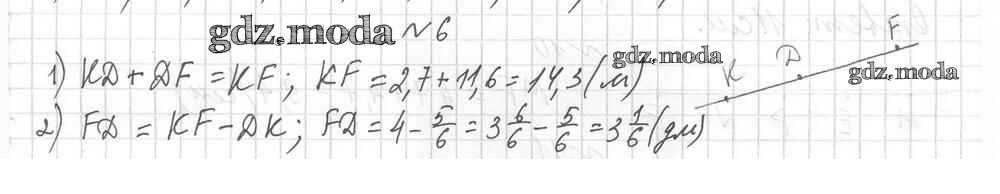 gdz.moda №6
1) KD + DF = KF; KF = 2,7 + 11,6 = 14,3 (м) gdz.moda
K D F
gdz.moda
2) FD = KF - DK; FD = 4 - 5/6 = 3 6/6 - 5/6 = 3 1/6 (дм)